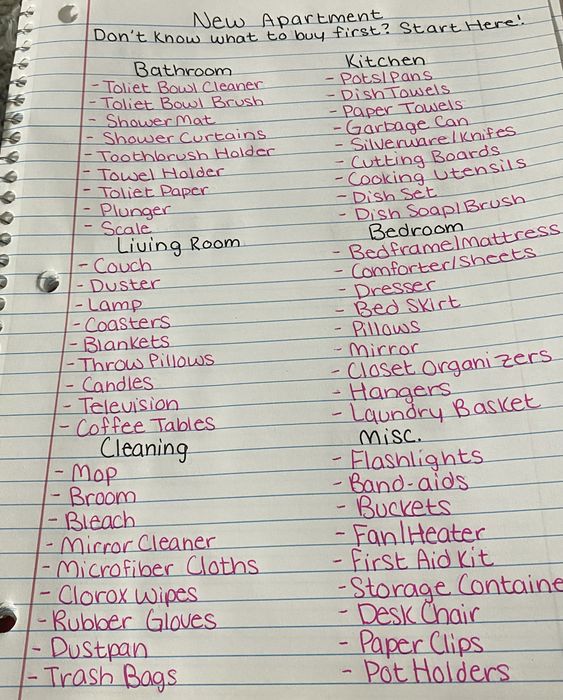 New Apartment
Don't Know what to buy first? Start Here!
Bathroom
- Toliet Bowl Cleaner
- Toliet Bowl Brush
- Shower Mat
- Shower Curtains
- Toothbrush Holder
- Towel Holder
- Toliet Paper
- Plunger
- Scale
Living Room
- Couch
- Duster
- Lamp
- Coasters
- Blankets
- Throw Pillows
- Candles
- Television
- Coffee Tables
Cleaning
- Mop
- Broom
- Bleach
- Mirror Cleaner
- Microfiber Cloths
- Clorox Wipes
- Rubber Gloves
- Dustpan
- Trash Bags
Kitchen
- Pots/Pans
- Dish Towels
- Paper Towels
- Garbage Can
- Silverware/Knifes
- Cutting Boards
- Cooking Utensils
- Dish Set
- Dish Soap/Brush
Bedroom
- Bedframe/Mattress
- Comforter/Sheets
- Dresser
- Bed Skirt
- Pillows
- Mirror
- Closet Organizers
- Hangers
- Laundry Basket
Misc.
- Flashlights
- Band-aids
- Buckets
- Fan/Heater
- First Aid Kit
- Storage Containe
- Desk Chair
- Paper Clips
- Pot Holders